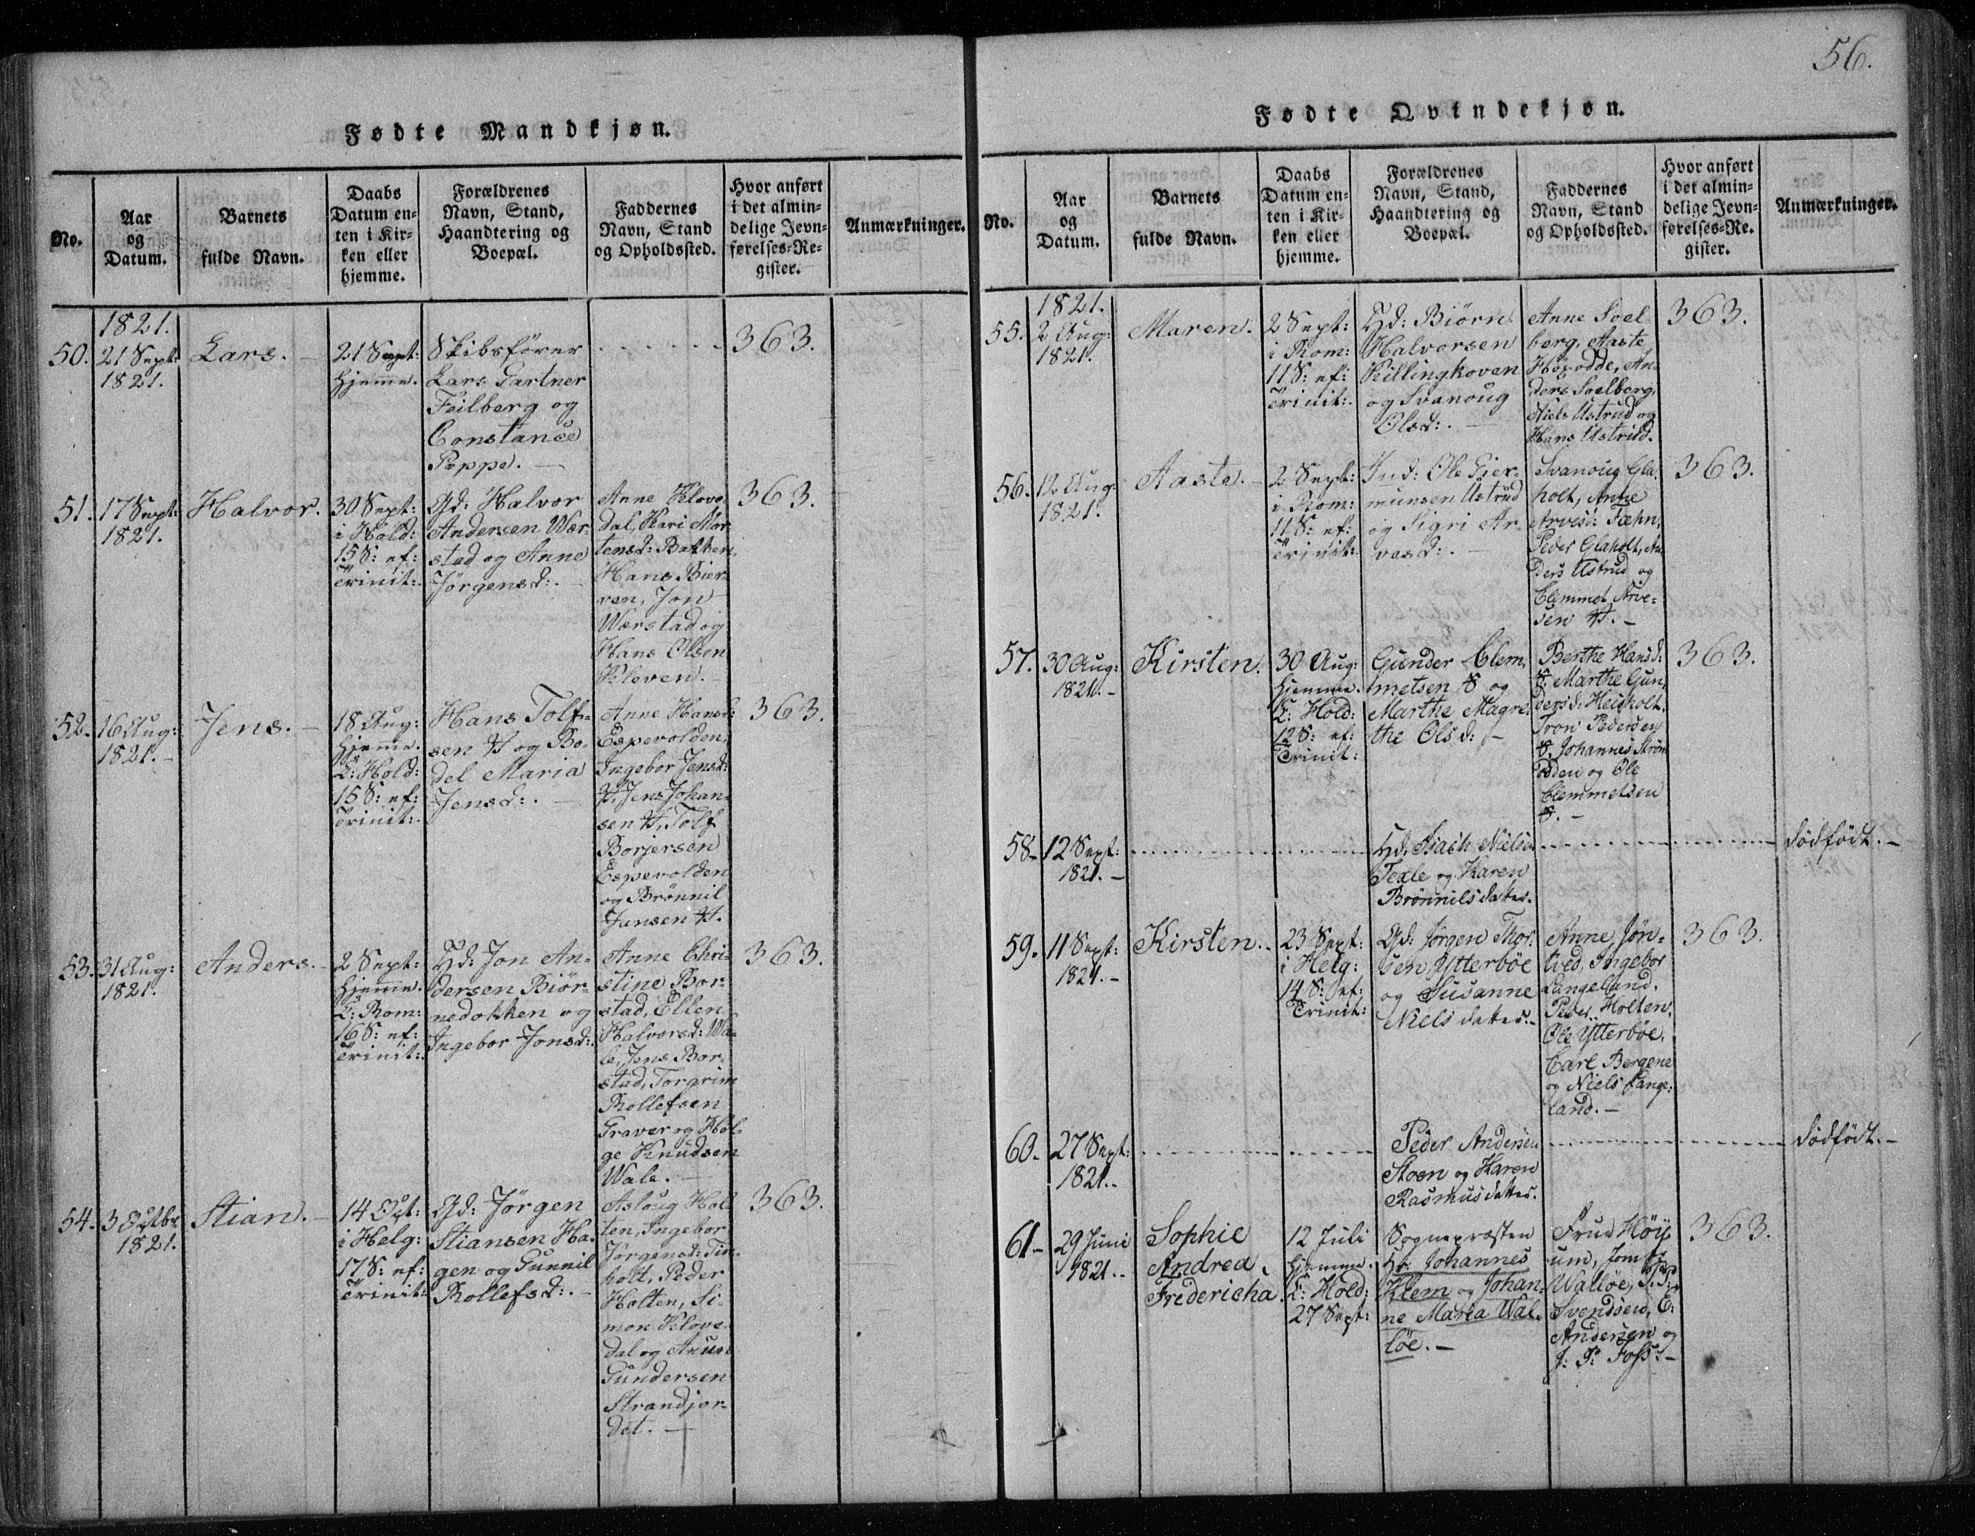 56.
Fødte Mandkjøn.
No.
Aar
og
Datum.
Barnets
fulde Navn.
Daabs
Datum en-
ten i Kir-
ken eller
hjemme.
Forældrenes
Navn, Stand,
Haandtering og
Boepæl.
Faddernes
Navn, Stand
og Opholdssted.
Hvor anført
i det almin-
delige Jevn-
førelses-Re-
gister.
Anmærkninger.
50.
1821.
21 Sept:
1821.
Lars.
21 Sept:
hjemme.
Skibsfører
Lars Gartner
Feilberg og
Constance
Poppe.
363.
51.
17 Sept:
1821.
Halvor.
30 Sept:
i Hold:
15 S: ef:
Trinit:
Gd: Halvor
Andersen Wær
stad og Anne
Jørgensd:
Anne Klove
dal, Kari Mor
tensd: Bakken,
Hans Bier-
ren, Jon
Wærstad og
Hans Olsen
Kleven.
363.
52.
16 Aug:
1821.
Jens.
18 Aug:
hjemme.
C: Hold:
15 S: ef:
Trinit:
Hans Tolf-
sen H og Bo-
del Maria
Jensd:
Anne Hansd:
Espevolden,
Ingebor Jensd:
H, Jens Johan-
sen H, Tolf
Borjersen
Espevolden
og Brønnil
Jansen H.
363.
53.
31 Aug:
1821.
Anders.
2 Sept:
hjemme.
C: Rom:
16 S: ef:
Trinit:
Hd: Jon An-
dersen Biør-
nedokken og
Ingebor Jonsd:
Anne Chri-
stine Bor-
stad, Ellen
Halvorsd: Wa-
le, Jens Bor-
stad, Torgrim
Rollefsen
Graver og Hol-
ge Knudsen
Wale.
363.
54.
3 Octbr
1821.
Stian.
14 Oct:
i Helg:
17 S: ef:
Trinit:
Gd: Jørgen
Stiansen Ha-
gen og Gunnil
Rollefsd:
Aslaug Hol-
ten, Ingebor
Jorgensd: Tin-
holt, Peder
Holten, Si-
mon Klove-
dal og Anun
Gundersen
Strandjor-
det.
363.
Fødte Qvindekjøn.
No.
Aar
og
Datum.
Barnets
fulde Navn.
Daabs
Datum en-
ten i Kir-
ken eller
hjemme.
Forældrenes
Navn, Stand,
Haandtering og
Boepæl.
Faddernes
Navn, Stand
og Opholdssted.
Hvor anført
i det almin-
delige Jevn-
førelses-Re-
gister.
Anmærkninger.
55.
1821.
2 Aug:
1821.
Maren.
2 Sept:
i Rom:
11 S: ef:
Trinit:
Hd: Biørn
Halvorsen
Killingkoven
og Svanoug
Olsd:
Anne Soel-
berg, Aaste
Hogodde, An-
ders Soelberg,
Niels Ustrud og
Hans Ustrud.
363.
56.
12 Aug:
1821.
Aaste.
2 Sept:
i Rom:
11 S: ef:
Trinit:
Ind: Ole Gier-
munsen Ustrud
og Sigri Ar-
vesd:
Svanoug Gla-
holt, Anne
Arvesd: Fæhn,
Peder Glaholt, An-
ders Ustrud og
Clemmet Arve-
sen H.
363.
57.
30 Aug:
1821.
Kirsten.
30 Aug:
hjemme.
C: Hold:
12 S: ef:
Trinit:
Gunder Clem-
metsen S og
Marthe Magre-
the Olsd:
Berthe Hansd:
S, Marthe Gun-
dersd: Heigholt,
Tron Pedersen
S, Johannes Strøm
odden og Ole
Clemmetsen
S.
363.
58.
12 Sept:
1821.
Hd: Isach Nielsen
Texle og Karen
Brønnilsdatter.
dødfødt.
59.
11 Sept:
1821.
Kirsten.
23 Sept:
i Helg:
14 S: ef:
Trinit:
Gd: Jørgen Thor-
sen Ytterbøe
og Susanne
Nielsdatter.
Anne Jøn-
tved, Ingebor
Langeland,
Peder Holten,
Ole Ytterbøe,
Carl Bergene
og Niels Lange-
land.
363.
60.
27 Sept:
1821.
Peder Andersen
Stoen og Karen
Rasmusdatter.
dødfødt.
61.
29 Juni
1821.
Sophie
Andrea
Fredericha.
12 Juli
hjemme.
C: Hold:
27 Sept:
Sognepræsten
Hr. Johannes
Klem og Johan-
ne Maria Wal-
løe.
Frue Høy-
um, Jomfr:
Walløe,
Svendsen, C:
Andersen og
J: P: Foss.
363.